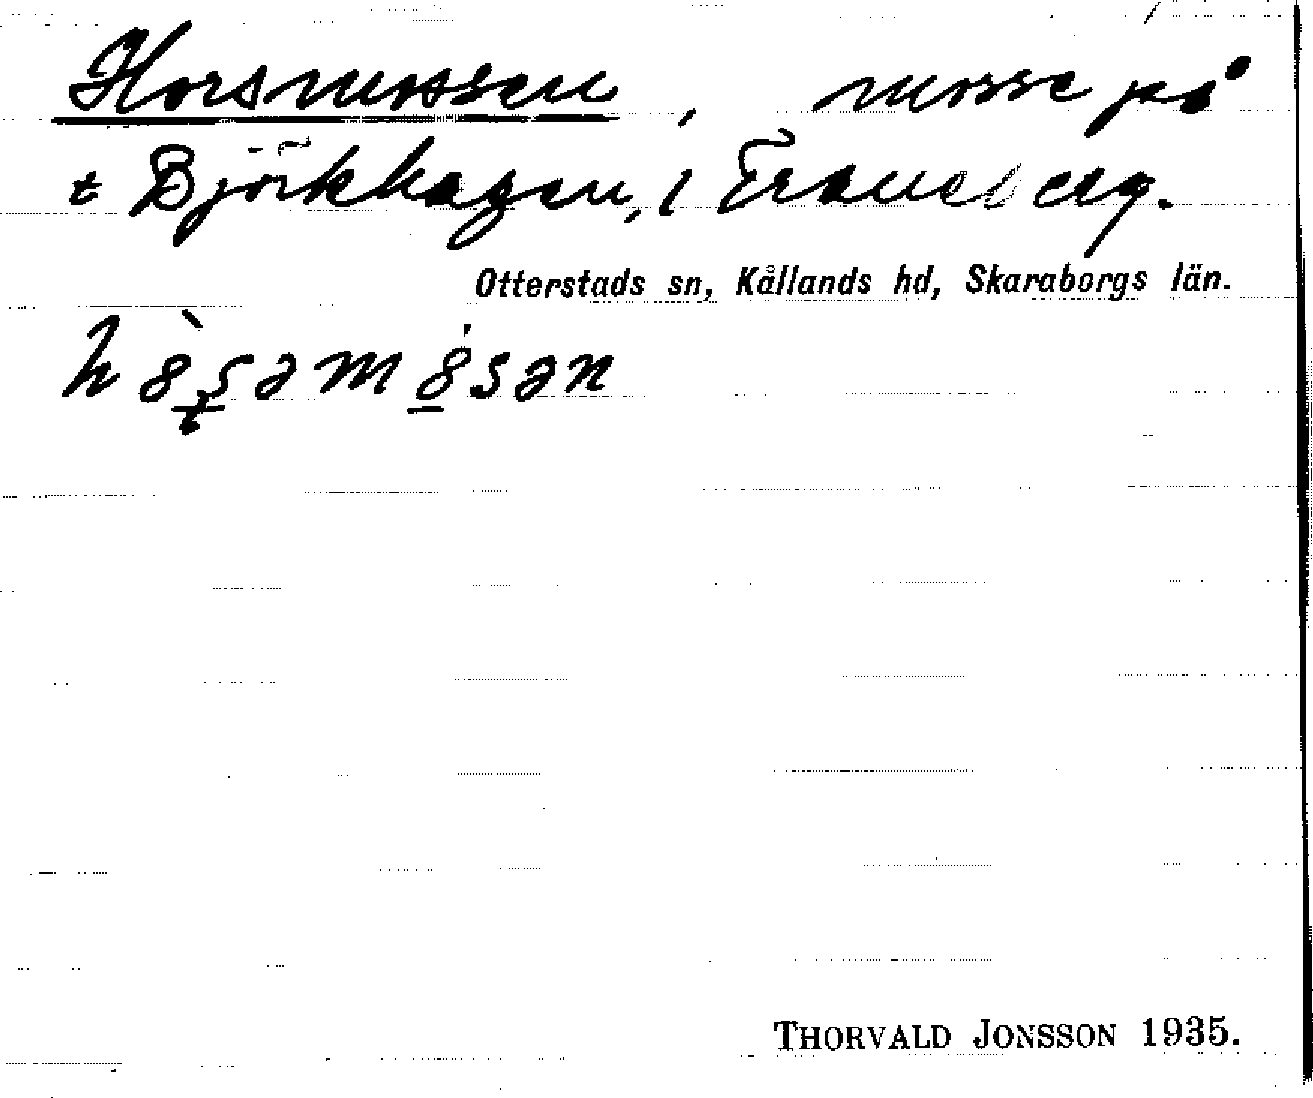 Horsmossen, mosse på
t Björkhagen, 1 Traneberg.
Otterstads sn, Kållands hd, Skaraborgs län.
THORVALD JONSSON 1935.